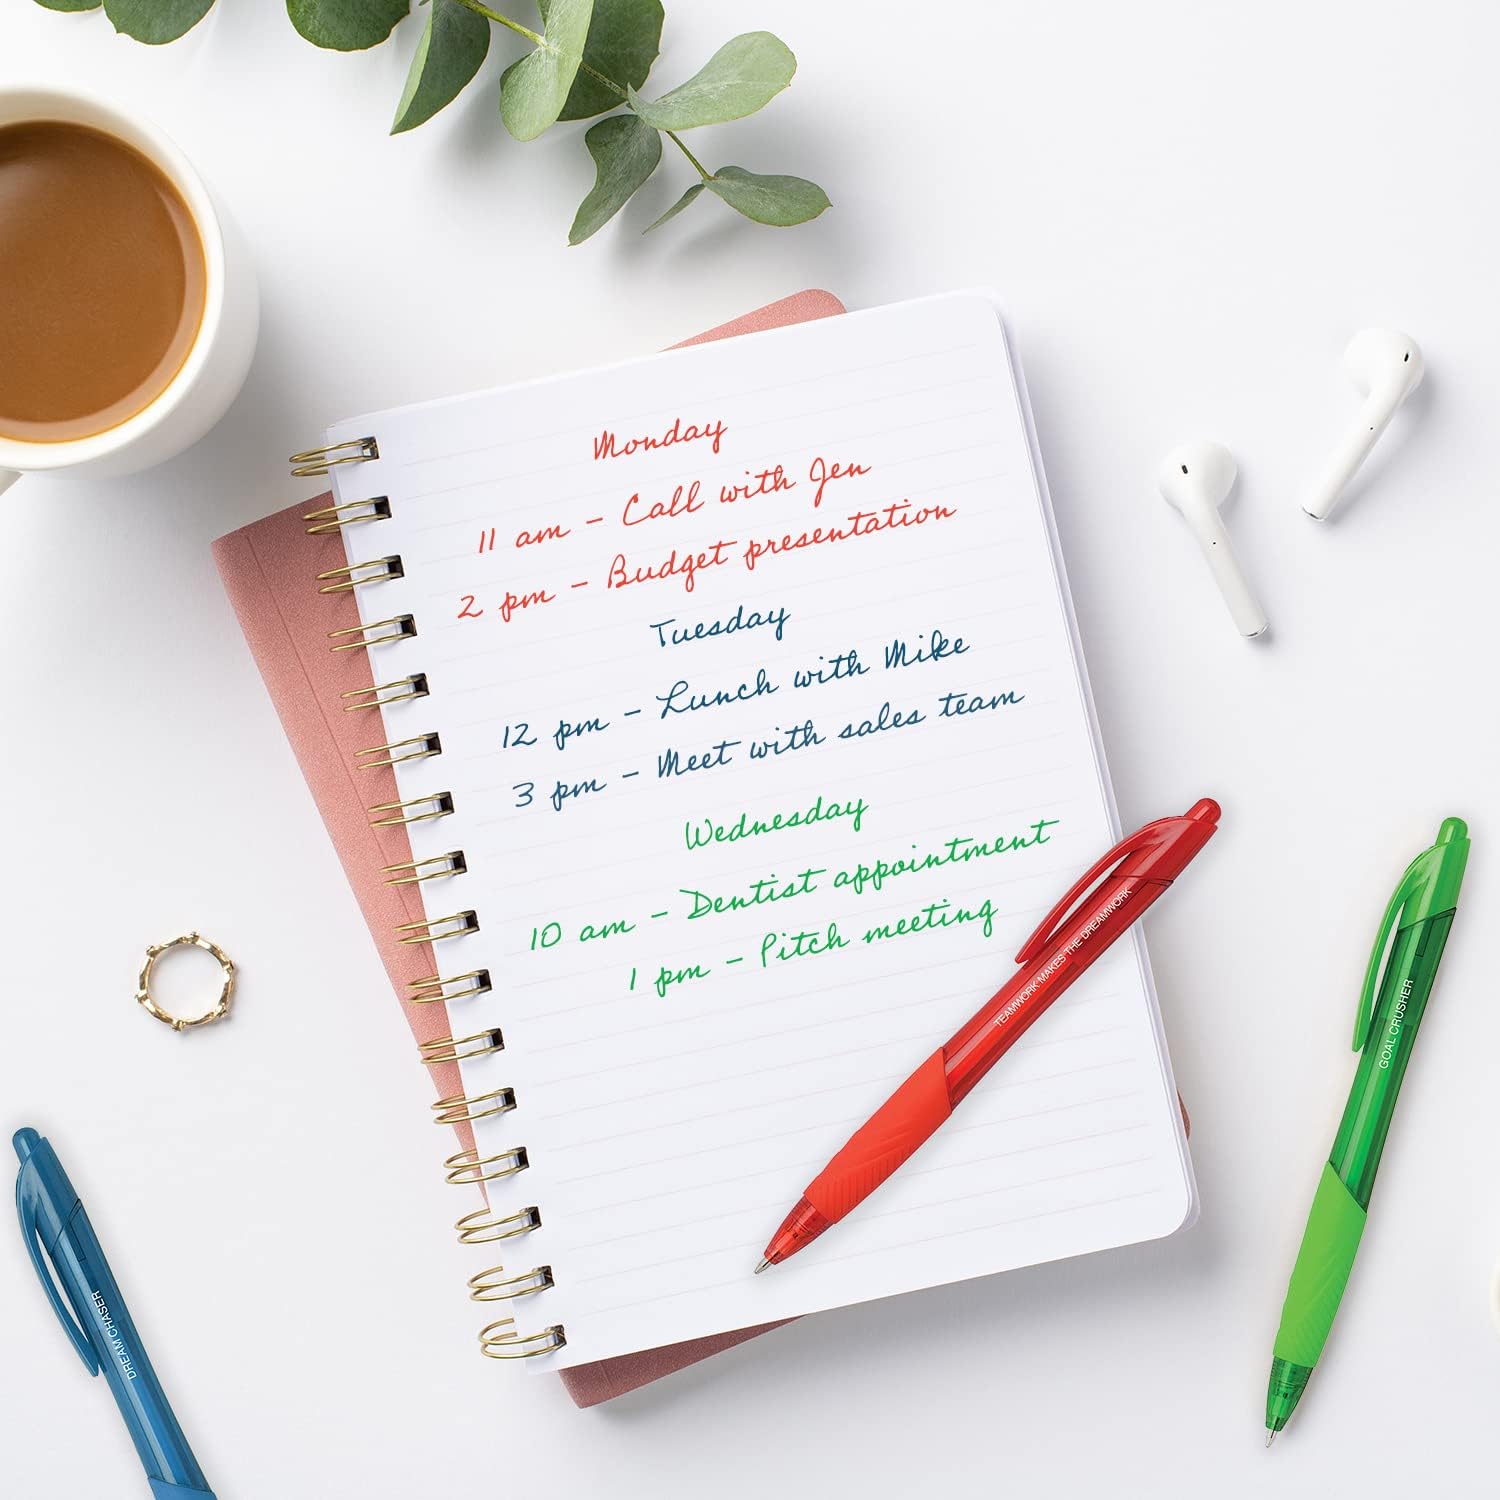 Monday
11 am – Call with Jen
2 pm – Budget presentation
Tuesday
12 pm – Lunch with Mike
3 pm – Meet with sales team
Wednesday
10 am – Dentist appointment
1 pm – Pitch meeting
TEAMWORK MAKES THE DREAMWORK
GOAL CRUSHER
DREAM CHASER